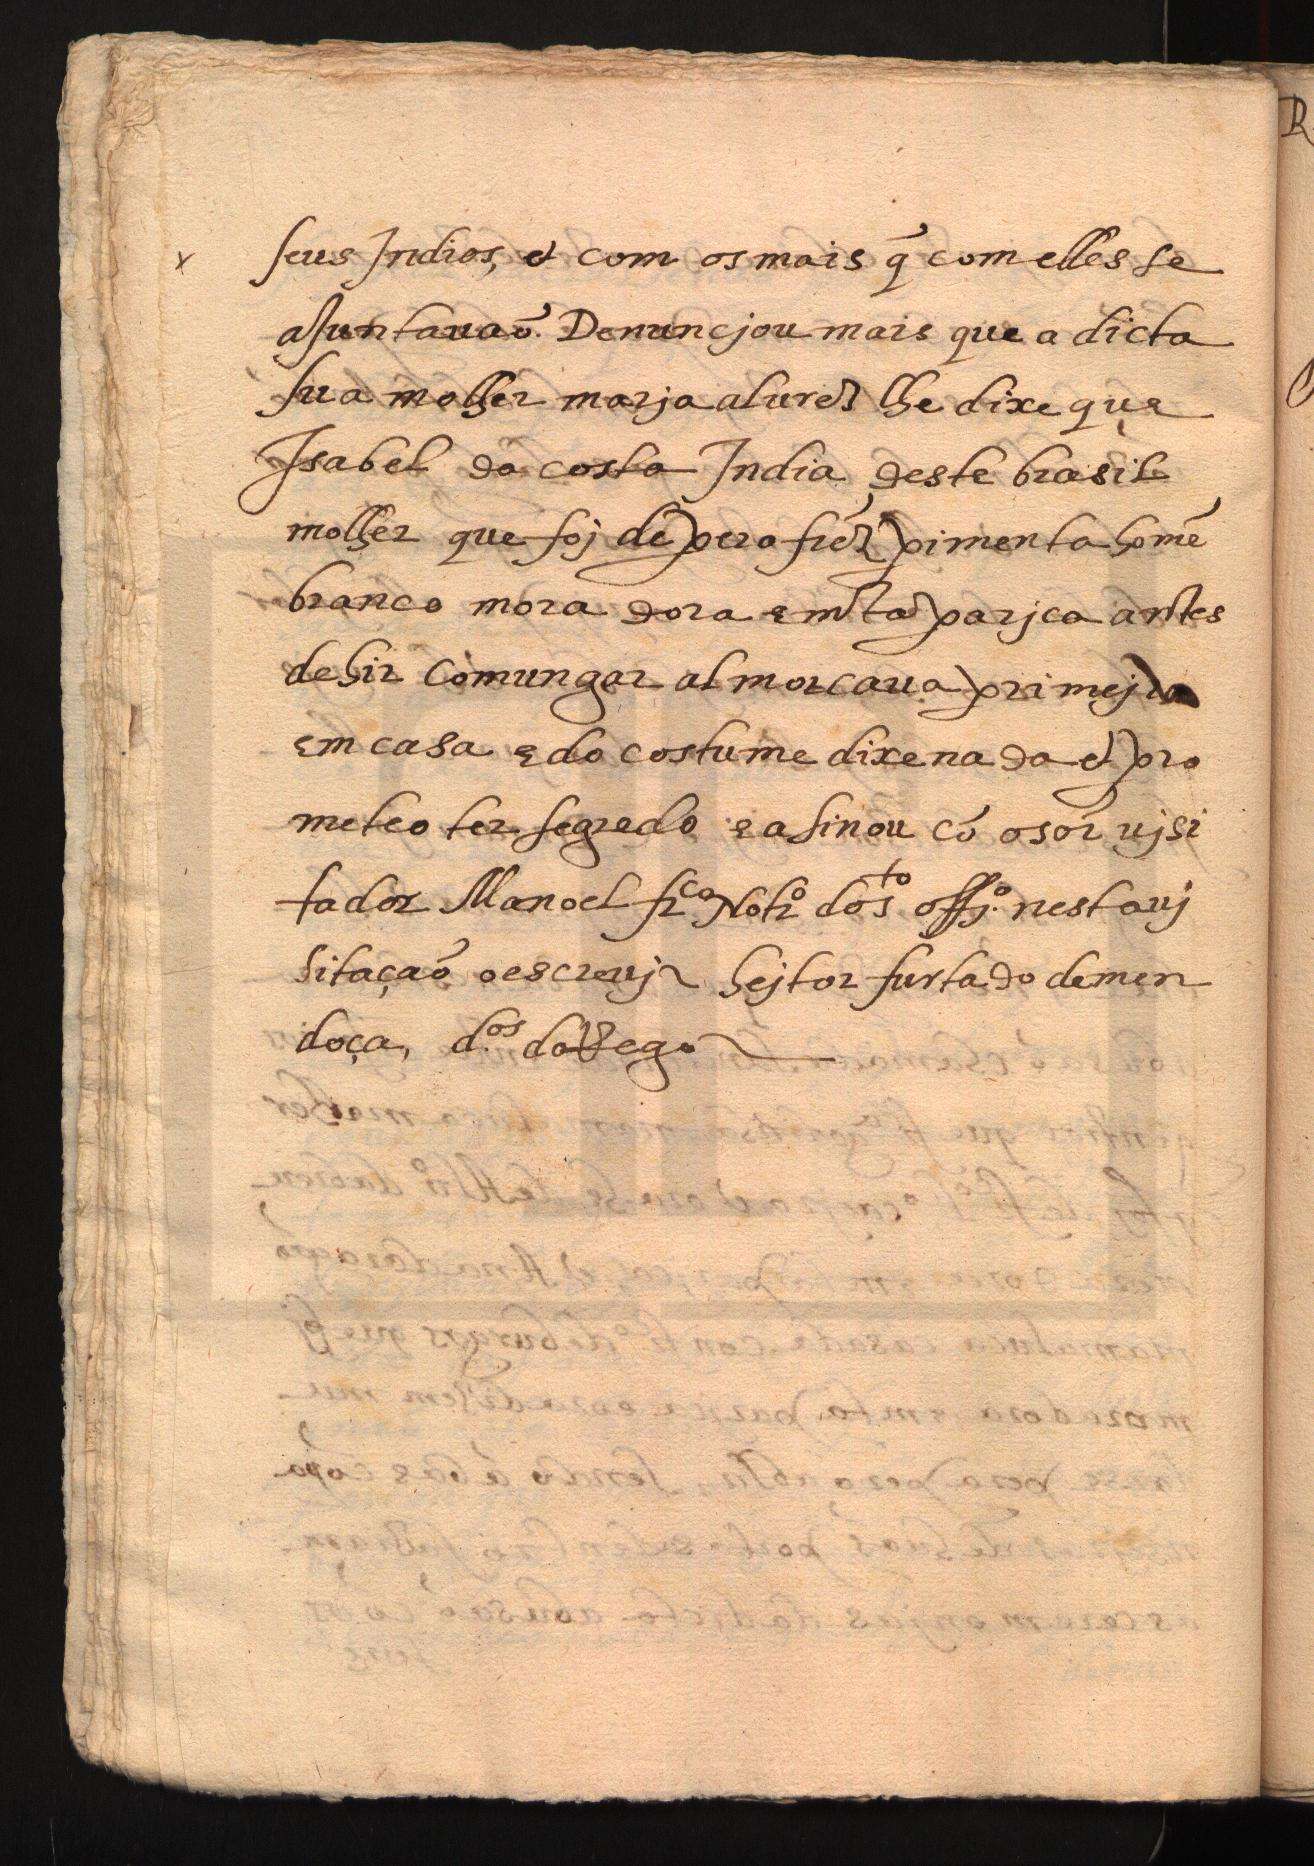 x seus Indios, et com os mais q̃ com elles se
ajuntauaõ. Denuncjou mais que a dicta
sua molher marja aluréz lhe dixe que
Isabel da costa India deste brasil
molher que foj de pero frẽz pimenta homẽ
branco moradora em taparjca antes
de hir comungar almorcaua primejra
em casa e do costume dixe nada et pro
meteo ter segredo e asinou cõ o sõr vjsi
tador Manoel frco Notro do sto offjo nesta vj
sitaçaõ o escrevj hejtor furtado de men
doça, d.os do Rego